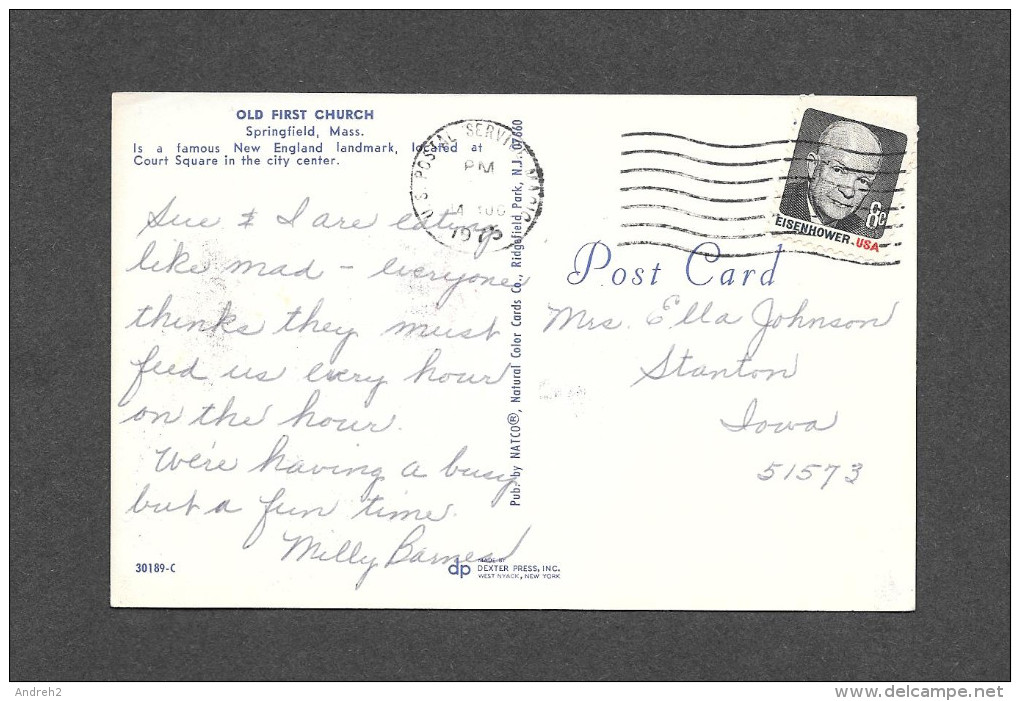 OLD FIRST CHURCH
Springfield, Mass.
Is a famous New England landmark, located at
Court Square in the city center.
Sue & I are eating
like mad - everyone
thinks they must
feed us every hour
on the hour.
We're having a busy
but a fun time.
Milly Barnes
30189-C
dp MADE BY
DEXTER PRESS, INC.
WEST NYACK, NEW YORK
Pub. by NATCO®, Natural Color Cards Co., Ridgefield Park, N.J. 07660
U.S. POSTAL SERVICE
PM
EISENHOWER·USA
6c
Post Card
Mrs. Ella Johnson
Stanton
Iowa
51573
Andreh2
www.delcampe.net